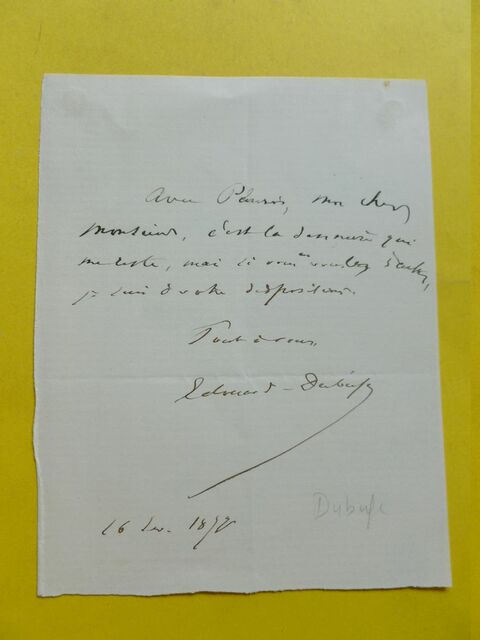 Avec Plaisir, mon cher
monsieur, c'est la dernière qui
me reste, mais si vous en voulez d'autres,
je suis à votre disposition.
Tout à vous.
Edouard-Dubufe
Dubufe
16 1878